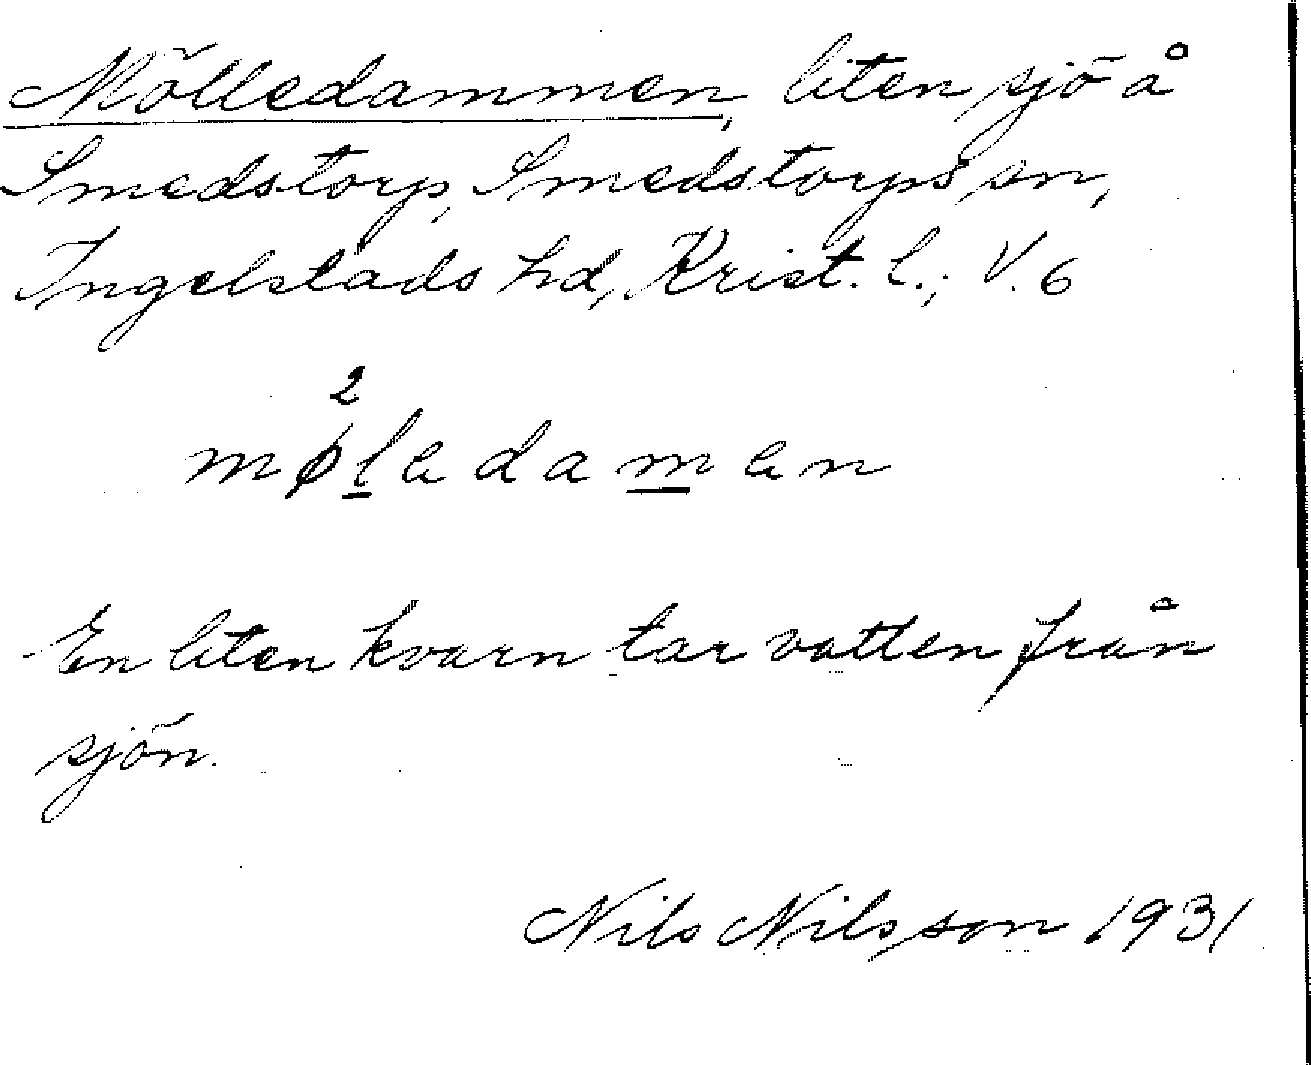 Mölledammen, liten sjö å
Smedstorp, Smedstorps sn,
Ingelstads hd, Krist. l.; V. 6
2
møledamen
En liten kvarn tar vatten från
sjön.
Nils Nilsson 1931